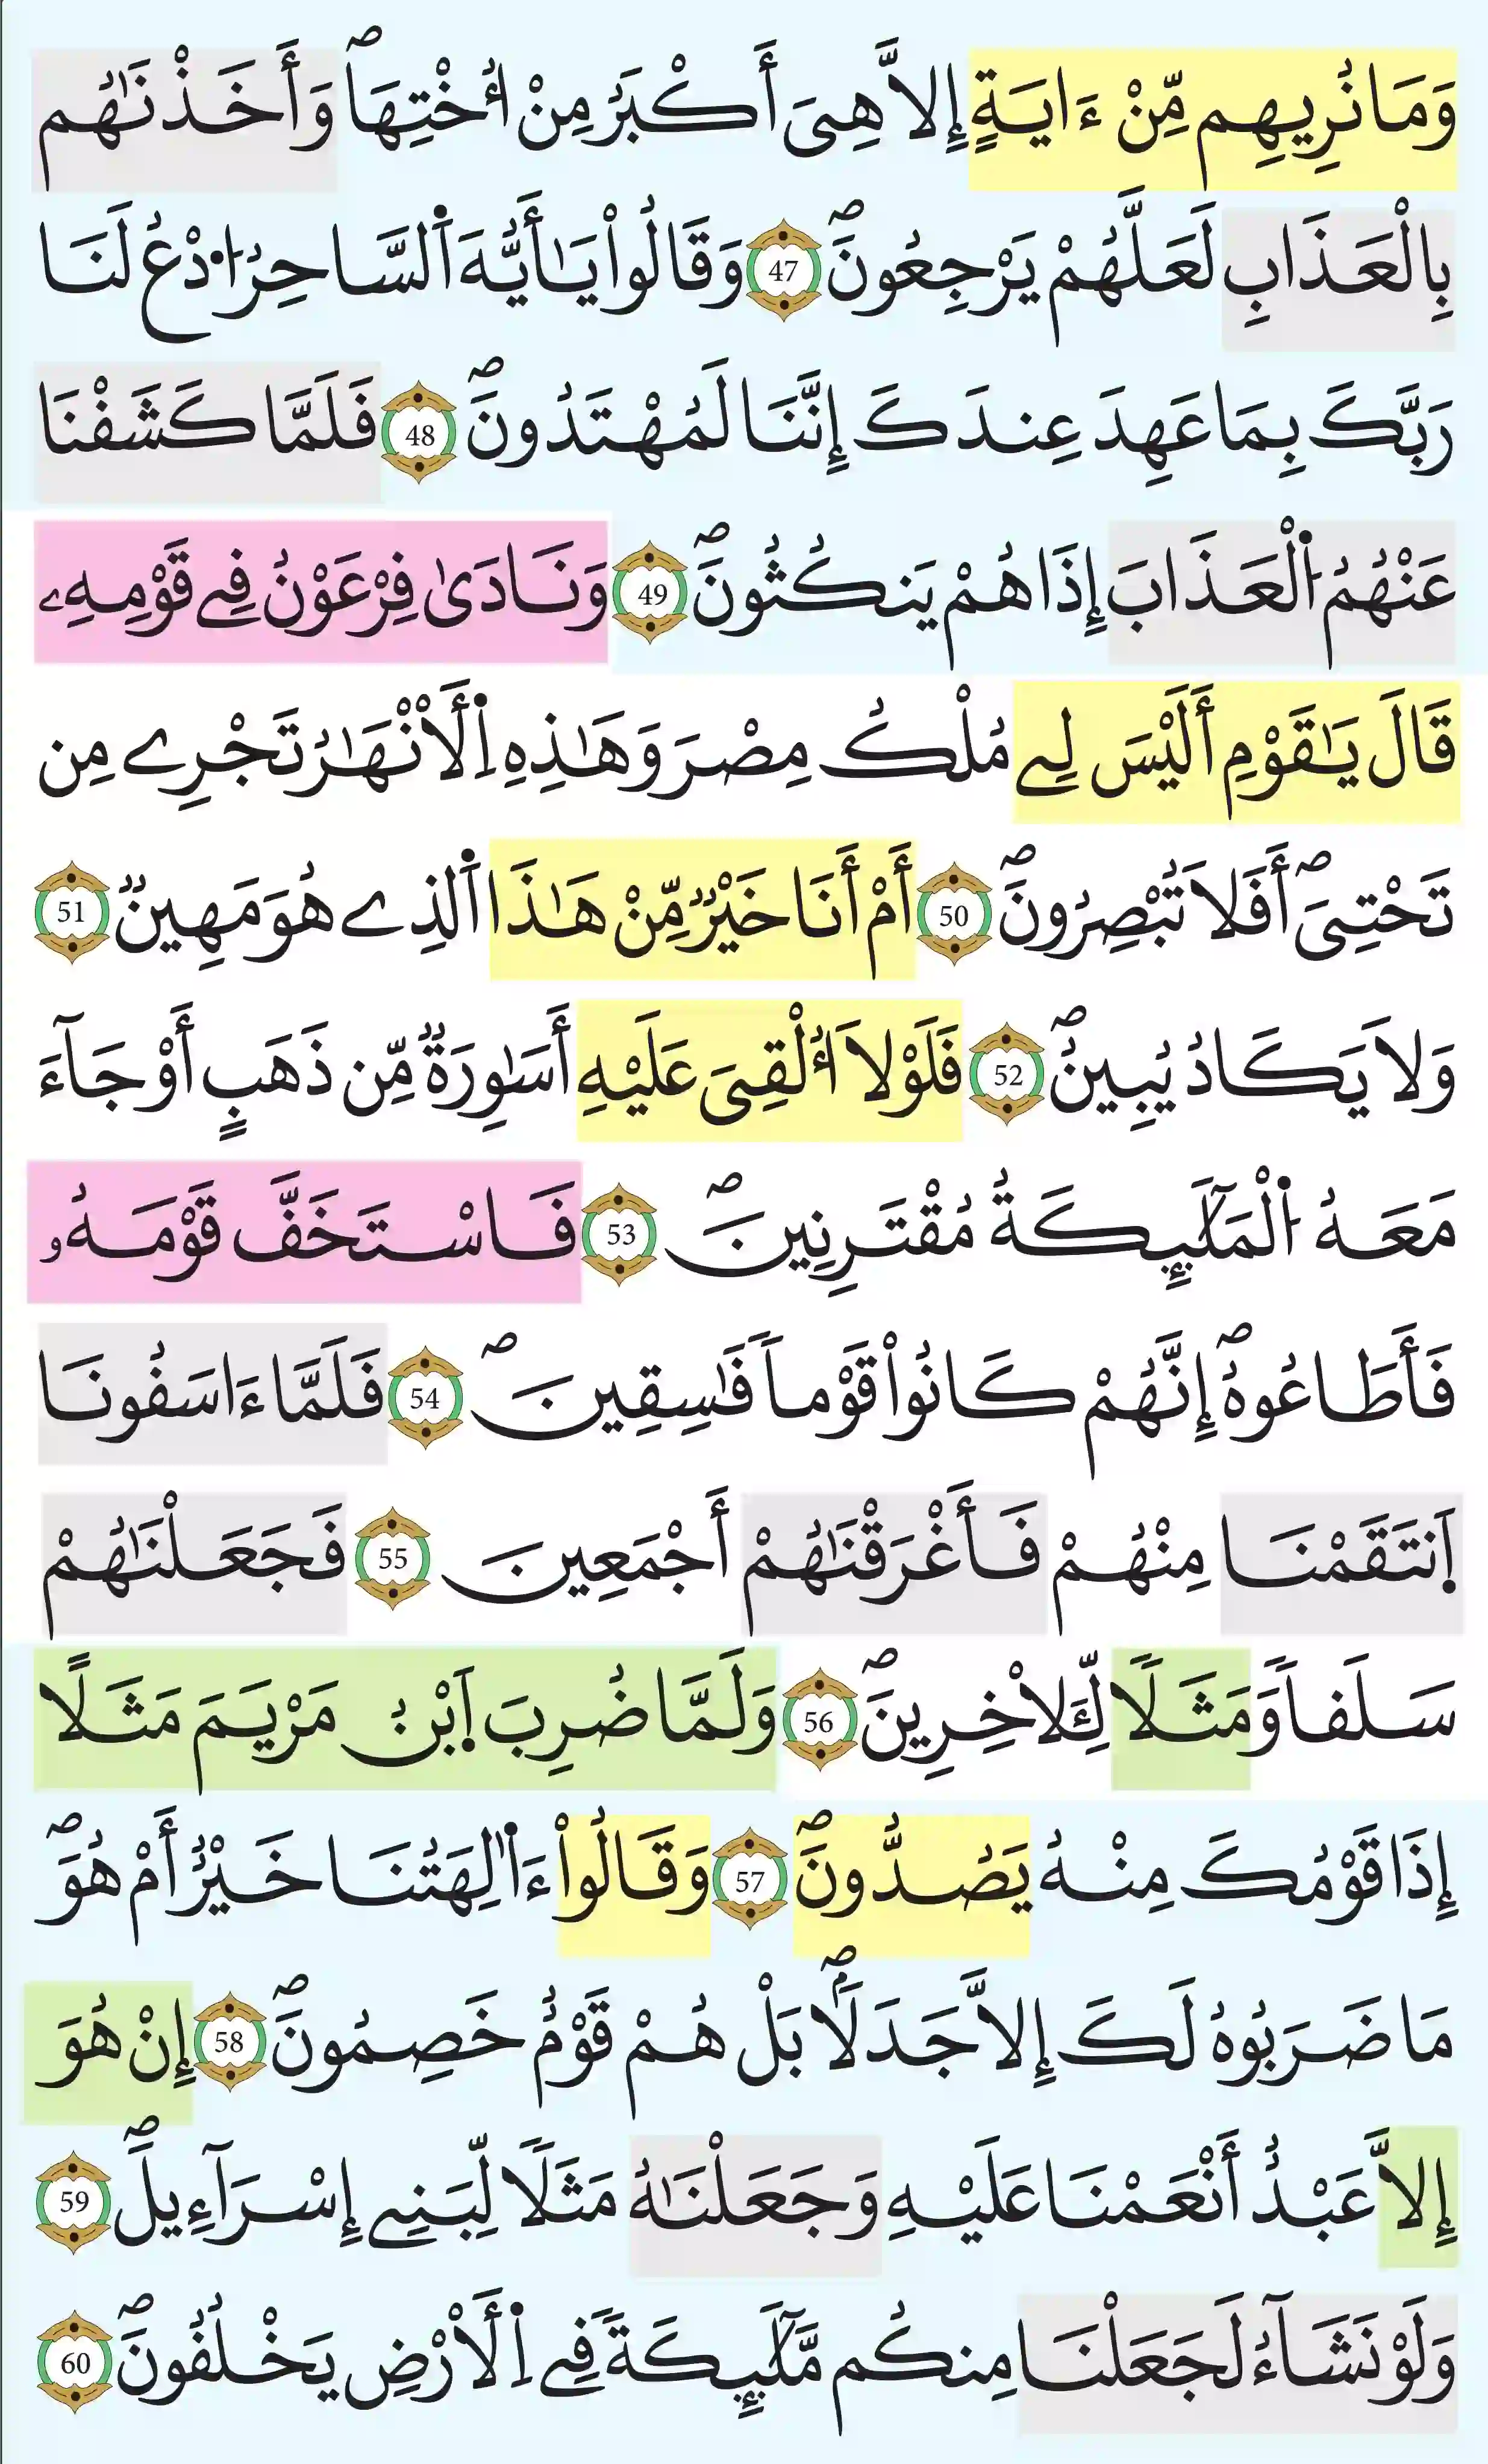 وَمَا نُرِيهِم مِّنْ ءَايَةٍ إِلاَّ هِىَ أَكْبَرُ مِنْ ا۟خْتِهَاۖ وَأَخَذْنَٰهُم
بِالْعَذَابِ لَعَلَّهُمْ يَرْجِعُونَۖ 47 وَقَالُواْ يَٰأَيُّهَ اَ۬لسَّاحِرُ ا۟دْعُ لَنَا
رَبَّكَ بِمَا عَهِدَ عِندَكَ إِنَّنَا لَمُهْتَدُونَۖ 48 فَلَمَّا كَشَفْنَا
عَنْهُمُ اُ۬لْعَذَابَ إِذَا هُمْ يَنكُثُونَۖ 49 وَنَادَىٰ فِرْعَوْنُ فِے قَوْمِهِۦ
قَالَ يَٰقَوْمِ أَلَيْسَ لِے مُلْكُ مِصْرَ وَهَٰذِهِ اِ۬لَانْهَٰرُ تَجْرِے مِن
تَحْتِىَۖ أَفَلَا تُبْصِرُونَۖ 50 أَمْ أَنَا خَيْرٌ مِّنْ هَٰذَا اَ۬لذِے هُوَ مَهِينٌ 51
وَلَا يَكَادُ يُبِينُۖ 52 فَلَوْلَا أُلْقِىَ عَلَيْهِ أَسَٰوِرَةٌ مِّن ذَهَبٍ أَوْ جَآءَ
مَعَهُ اُ۬لْمَلَٰٓئِكَةُ مُقْتَرِنِينَۖ 53 فَاسْتَخَفَّ قَوْمَهُۥ
فَأَطَاعُوهُۖ إِنَّهُمْ كَانُواْ قَوْماً فَٰسِقِينَۖ 54 فَلَمَّا ءَاسَفُونَا
اَ۪نتَقَمْنَا مِنْهُمْ فَأَغْرَقْنَٰهُمْ أَجْمَعِينَ 55 فَجَعَلْنَٰهُمْ
سَلَفاً وَمَثَلًا لِّلَاخِرِينَۖ 56 وَلَمَّا ضُرِبَ اَ۪بْنُ مَرْيَمَ مَثَلًا
إِذَا قَوْمُكَ مِنْهُ يَصُدُّونَۖ 57 وَقَالُواْ ءَاٰ۬لِهَتُنَا خَيْرٌ أَمْ هُوَۖ
مَا ضَرَبُوهُ لَكَ إِلاَّ جَدَلَاۢۖ بَلْ هُمْ قَوْمٌ خَصِمُونَۖ 58 إِنْ هُوَ
إِلاَّ عَبْدٌ أَنْعَمْنَا عَلَيْهِ وَجَعَلْنَٰهُ مَثَلًا لِّبَنِے إِسْرَآءِيلَۖ 59
وَلَوْ نَشَآءُ لَجَعَلْنَا مِنكُم مَّلَٰٓئِكَةً فِے اِ۬لَارْضِ يَخْلُفُونَۖ 60